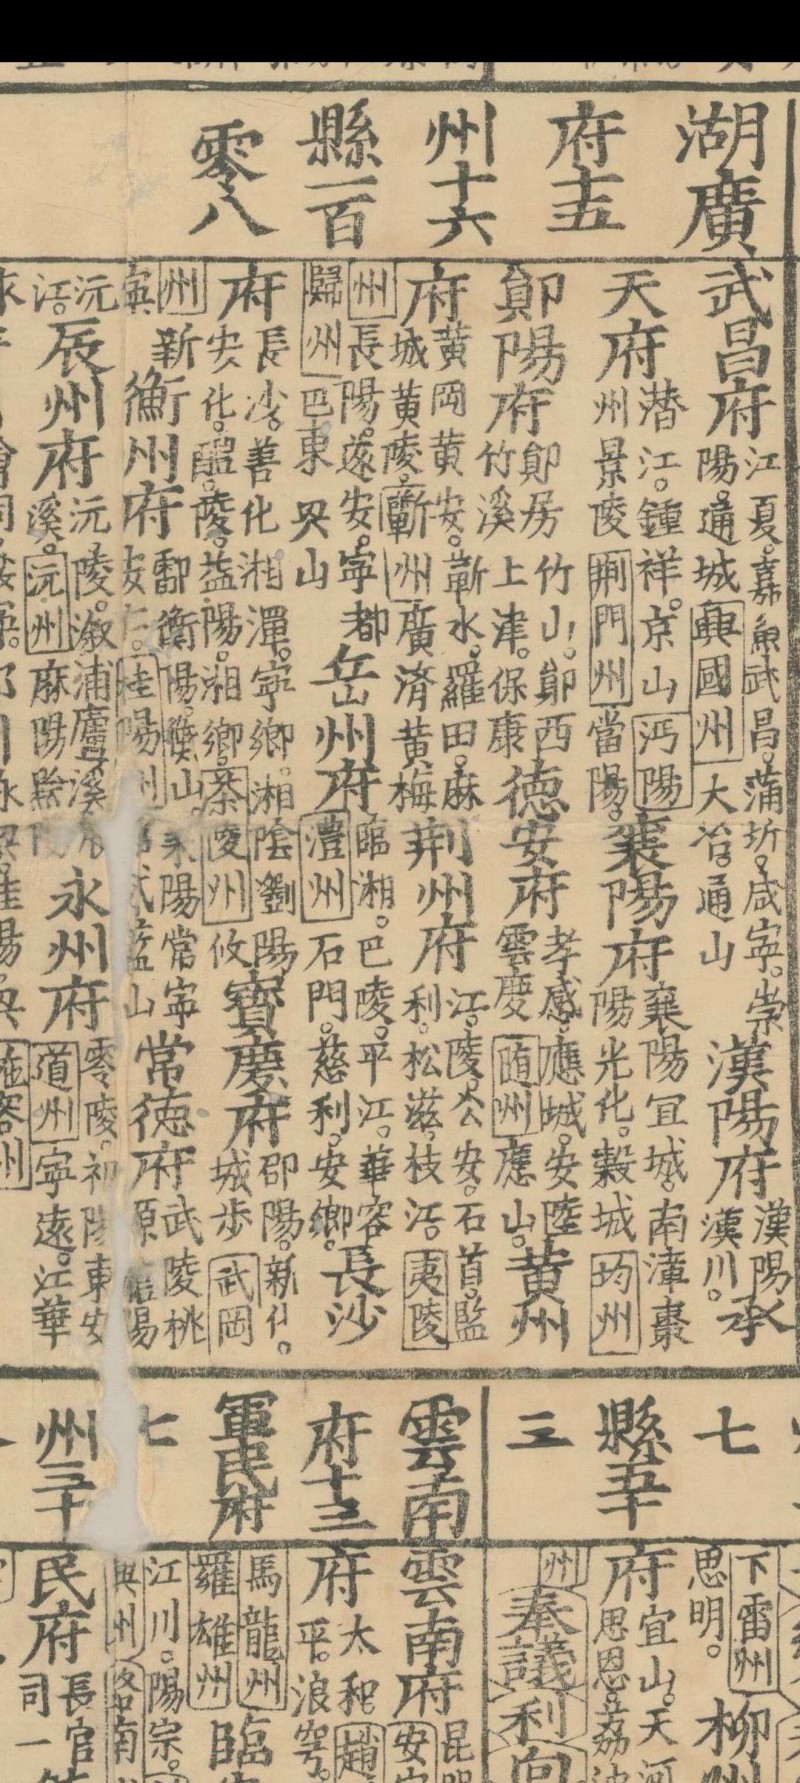 湖廣
府十五
州十六
縣一百
零八
武昌府
江夏。嘉魚武昌。蒲圻。咸寧。崇
陽。通城興國州大冶。通山
漢陽府
漢陽
漢川。
承
天府
潛江。鍾祥。京山沔陽
州景陵荆門州當陽。
襄陽府
襄陽宜城。南漳棗
陽光化。穀城均州
鄖陽府
鄖房竹山。鄖西
竹溪上津。保康
德安府
孝感。應城。安陸
雲慶隨州應山。
黃州
府
黃岡黃安。蘄水。羅田。麻
城黃陵。蘄州廣濟黃梅
荆州府
江陵。公安。石首。監
利。松滋。枝江。夷陵
州長陽。遂安。寧都
歸州巴東㒷山
岳州府
臨湘。巴陵。平江。華容
澧州石門。慈利。安鄉。
長沙
府
長沙。善化湘潭。寧鄉。湘陰劉陽
安化。醴陵。益陽。湘鄉。茶陵州攸
寶慶府
邵陽。新化。
城步武岡
州新
寧
衡州府
酃衡陽。衡山。耒陽常寧
安仁。桂陽州藍山
常德府
武陵桃
源龍陽
沅
江。
辰州府
沅陵。溆浦盧溪辰
溪。沅州麻陽黔陽
永州府
零陵。祁陽東安
道州寧遠。江華
七
縣五十
三
下雷州
思明。
柳州
府
宜山。天河
思恩。荔波
州
奉議
利
向
雲南
府十三
軍民府
七
州三十
雲南府
昆明
安寧
府
太和。趙
平。浪穹。
馬龍州
羅雄州
臨安
江川。陽宗。
民府
長官
司一